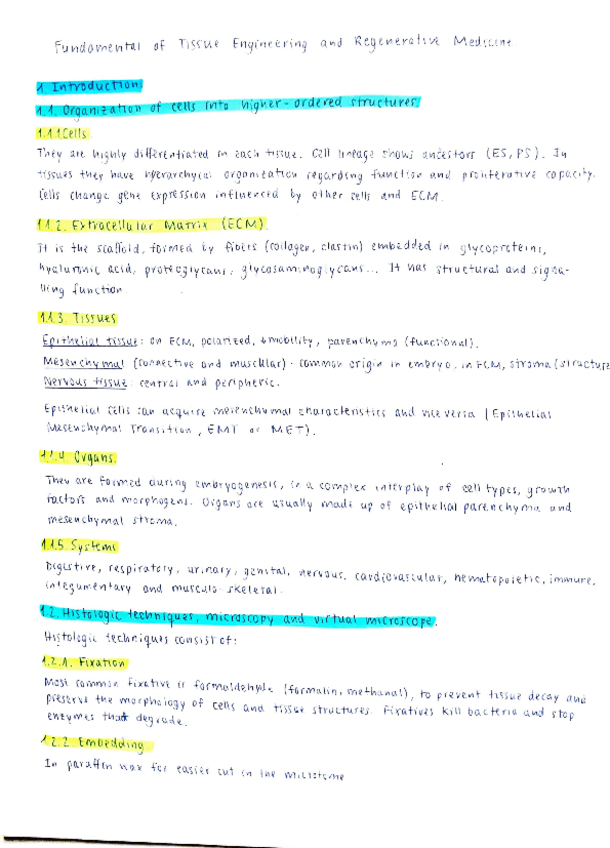 Fundamental of Tissue Engineering and Regenerative Medicine
1 Introduction
1.1. Organization of cells into higher-ordered structures.
1.1.1 Cells
They are highly differentiated in each tissue. Cell lineage shows ancestors (ES, PS). In
tissues they have hyerarchycal organization regarding function and proliferative capacity.
Cells change gene expression influenced by other cells and ECM.
1.1.2. Extracellular Matrix (ECM).
It is the scaffold, formed by fibers (collagen, elastin) embedded in glycoproteins,
hyaluronic acid, proteoglycans, glycosaminoglycans... It has structural and signa-
lling function.
1.1.3. Tissues
Epithelial tissue: on ECM, polarized, ↓mobility, parenchyma (functional).
Mesenchymal (connective and muscular): common origin in embryo, in ECM, stroma (structure
Nervous tissue: central and peripheric.
Epithelial cells can acquire mesenchymal characteristics and viceversa (Epithelial
Mesenchymal Transition, EMT or MET).
1.1.4. Organs.
They are formed during embryogenesis, in a complex interplay of cell types, growth
factors and morphogens. Organs are usually made up of epithelial parenchyma and
mesenchymal stroma.
1.1.5. Systems
Digestive, respiratory, urinary, genital, nervous, cardiovascular, hematopoietic, immune,
integumentary and musculo-skeletal.
1.2. Histologic techniques, microscopy and virtual microscope.
Histologic techniques consist of:
1.2.1. Fixation
Most common fixative is formaldehyde (formalin, methanal), to prevent tissue decay and
preserve the morphology of cells and tissue structures. Fixatives kill bacteria and stop
enzymes that degrade.
1.2.2 Embedding.
In paraffin wax for easier cut in the microtome